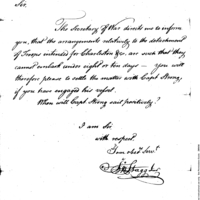 Sir,
The Secretary of War directs me to inform
you, that the arrangements relatively to the detachment
of Troops intended for Charleston &c. are such that they
cannot embark under eight or ten days — You will
therefore please to settle the matter with Capt Strong,
if you have engaged his vessel.
When will Capt Strong sail positively?
I am Sir
with respect
Your obed Servt
Jno Stagg Jr